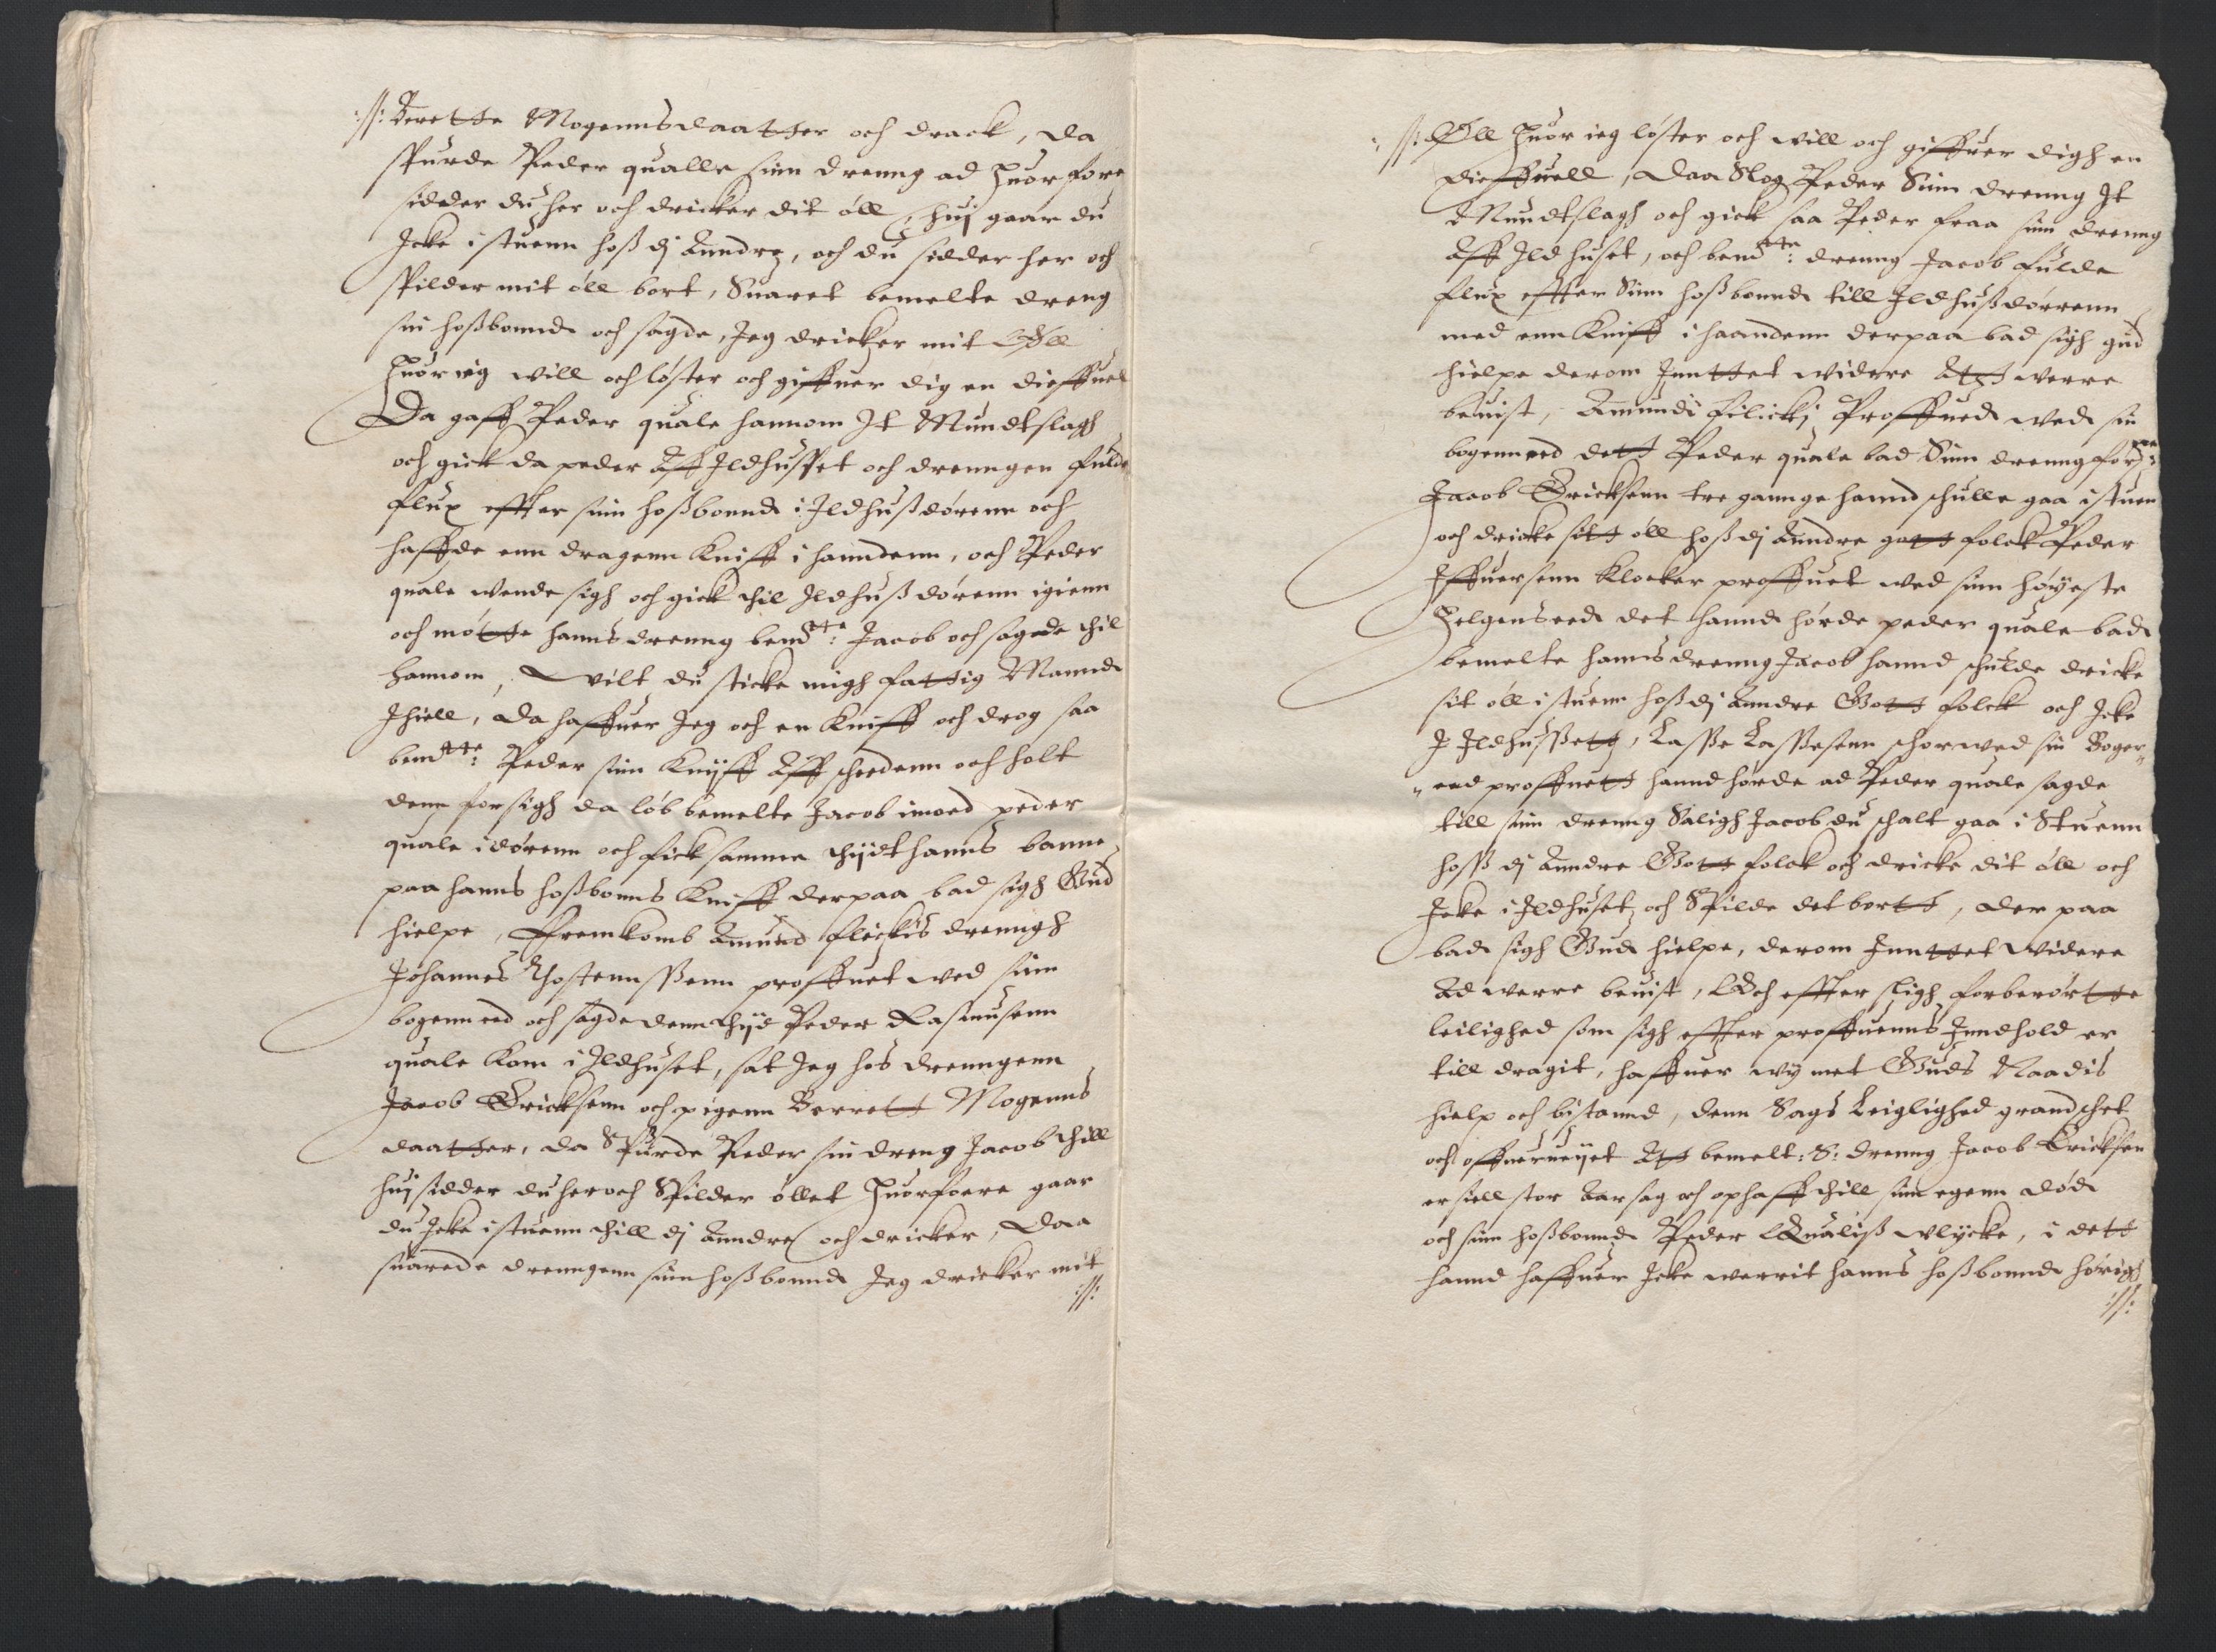 :/: Berette Mogennsdaatter och drack, da
spurde Peder qualle sinn drenng ad huorfore
sidder du her och dricker dit öll, huj gaar du
Icke i stuenn hoß dj Anndre, och du sidder her och
spilder mit öll bort, Suaret bemelte dreng
sin hoßbonnd och sagde, Jeg dricker mit Öll
huor ieg will och löster och giffuer dig en dieffuel
Da gaff Peder quale hannom It Mundtslagh
och gick da peder Aff Ildhusset och drenngen fulde
flux effter sinn hoßbonnd i Ildhußdörenn och
haffde enn dragenn Kniff i hanndenn, och Peder
quale wende sigh och gick thil Ildhußdörenn igienn
och mötte hanns drenng bemdtte: Jacob och sagde thil
hannom, wilt du sticke migh fattig Mannd
Ihiell, da haffuer Jeg och en Kniff och drog saa
bemdtte: Peder sinn Knijff Aff schedenn och holt
denn for sigh da löb bemelte Jacob imod peder
quale i dörenn och fick samme thijdt hanns banne
paa hanns hoßbonns Kniff derpaa bad sigh Gud
hielpe, Fremkomb Amund flickis drenngh
Johannes Thostennssenn proffuet wed sinn
bogenn eed och sagde denn thijd Peder Rasmusenn
quale kom i Ildhuset, sat Jeg hos drenngenn
Jacob Ericksenn och pigenn Berrett Mogenns
daatter, da Spurde Peder sin dreng Jacob thill
huj sidder du her och Spilder öllet huorfoere gaar
du Icke i stuenn thill dj Anndre och dricker, Daa
suarede drenngenn sinn hoßbonnd Jeg dricker mit
:/:
:/: Öll huor ieg löster och will och giffuer digh en
dieffuell, Daa Slog Peder Sinn drenng It
Mundtslagh och gick saa Peder fraa sinn drenng
Aff Ildhuset, och bemdtte: drenng Jacob fulde
flux effter Sinn hoßbonnd till Ildhußdörrenn
med enn Kniff i haandenn derpaa bad sigh gud
hielpe derom Inttet widere Att werre
beuist, Amundj filickj Proffued wed sin
bogenn eed dett Peder quale bad Sinn drenng forne:
Jacob Ericksenn tre gannge hannd schulle gaa i stuen
och dricke sitt öll hoß dj Anndre gott folck Peder
Iffuersenn Klocker proffuet wed sinn höyeste
helgens eed det hannd hörde peder quale bad
bemelte hanns drenng Jacob hannd schulde dricke
sit öll i stuenn hoß dj Anndre Gott folck och Icke
I Ildhussett, Lasse Lassesenn schor wed sin Boger
eed proffuett hannd hörde ad Peder quale sagde
till sinn drenng Saligh Jacob du schalt gaa i Stuenn
hoss dj Anndre Gott folck och dricke dit öll och
Icke i Ildhuset och Spilde det bortt, der paa
bad sigh Gud hielpe, derom Inntet widere
Ad werre beuist, Och effter sligh forberörtte
leilighed som sigh effter proffuenns Inndhold er
till dragit, haffuer wy met Guds Naadis
hielp och bistannd, denn Sags Leiglighed grandschet
och offuerueijet Att bemelt: S: drenng Jacob Ericksen
er siell stor Aarsag och ophaff thill sinn egenn död
och sinn hoßbonnd Peder Qualiß wlycke, i dett
hannd haffuer Icke werrit hanns hoßbonnd hörigh
:/: